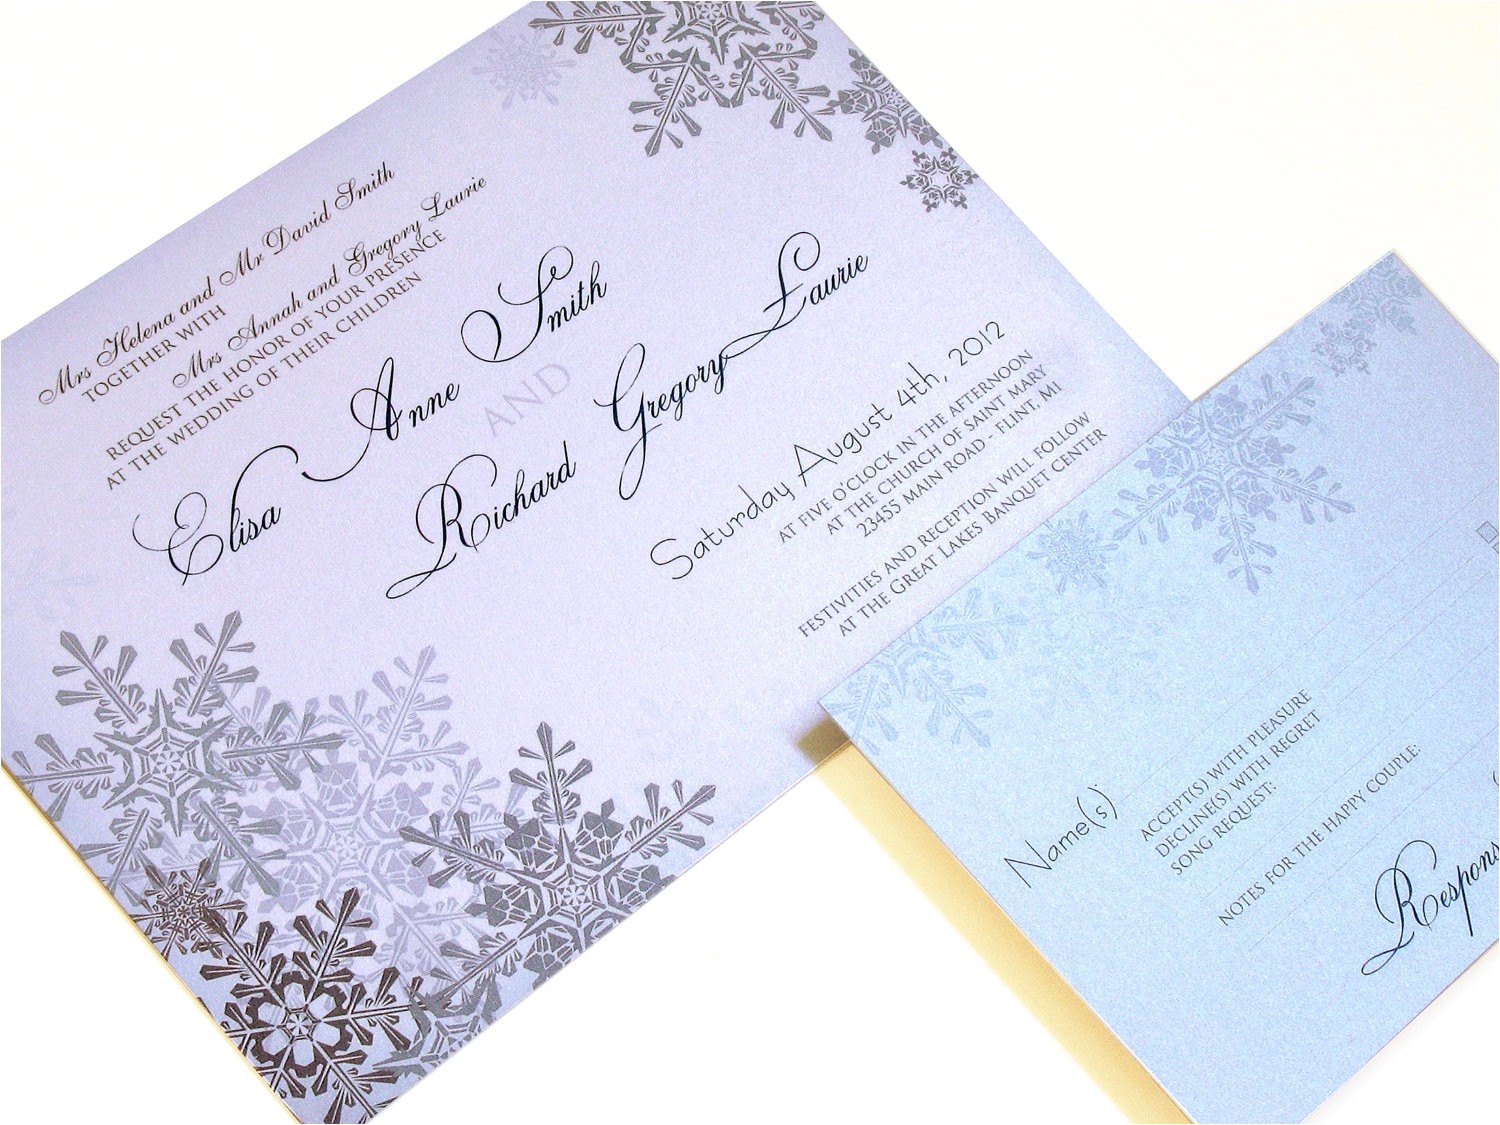 Mrs Helena and Mr David Smith
TOGETHER WITH
Mrs Annah and Gregory Laurie
REQUEST THE HONOR OF YOUR PRESENCE
AT THE WEDDING OF THEIR CHILDREN
Elisa Anne Smith
AND
Richard Gregory Laurie
Saturday August 4th, 2012
AT FIVE O'CLOCK IN THE AFTERNOON
AT THE CHURCH OF SAINT MARY
23455 MAIN ROAD - FLINT, MI
FESTIVITIES AND RECEPTION WILL FOLLOW
AT THE GREAT LAKES BANQUET CENTER
Name(s)
ACCEPT(S) WITH PLEASURE
DECLINE(S) WITH REGRET
SONG REQUEST:
NOTES FOR THE HAPPY COUPLE:
Respons